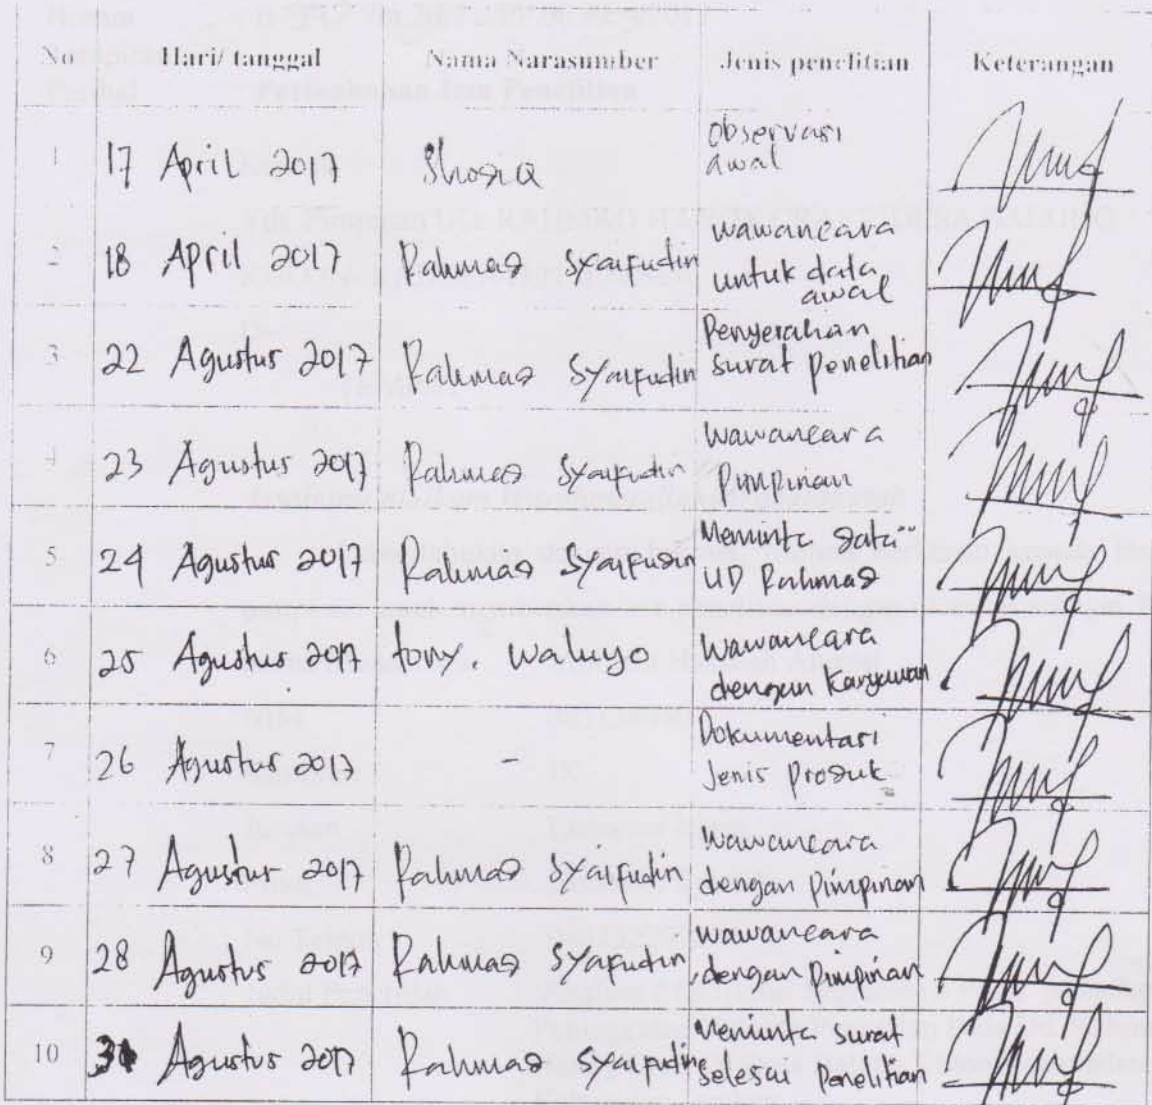 No Hari/ tanggal Nama Narasumber Jenis penelitian Keterangan
1 17 April 2017 Observasi
awal
2 18 April 2017 Rahmad Syaifudin wawancara
untuk data
awal
3 22 Agustus 2017 Rahmad Syaifudin Penyerahan
surat penelitian
4 23 Agustus 2017 Rahmad Syaifudin Wawancara
Pimpinan
5 24 Agustus 2017 Rahmad Syaifudin Meminta data
UD Rahmad
6 25 Agustus 2017 tony. waluyo Wawancara
dengan Karyawan
7 26 Agustus 2017 - Dokumentasi
Jenis Produk
8 27 Agustus 2017 Rahmad Syaifudin Wawancara
dengan Pimpinan
9 28 Agustus 2017 Rahmad Syaifudin wawancara
dengan Pimpinan
10 Agustus 2017 Rahmad Syaifudin Meminta surat
selesai Penelitian